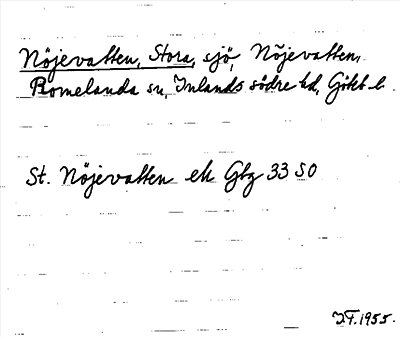 Nöjevatten, Stora, sjö, Nöjevatten,
Romelanda sn, Inlands södre hd, Götbl.
St. Nöjevatten ek Gbg 33 SO
I.F. 1955.